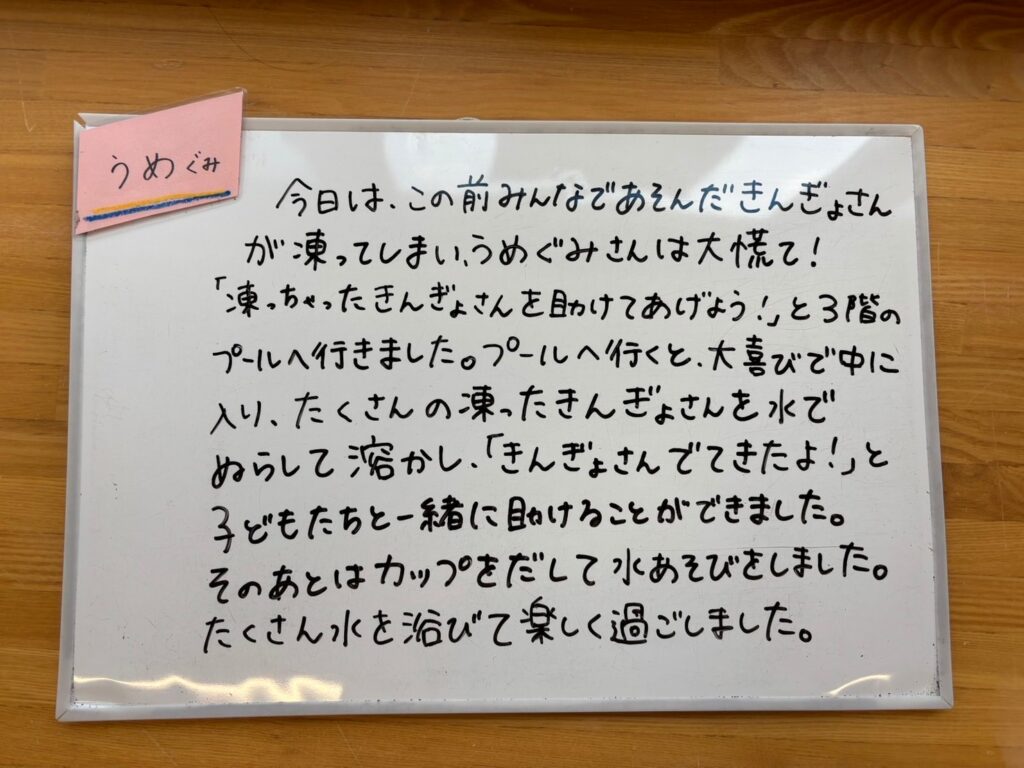 うめぐみ
今日は、この前みんなであそんだきんぎょさん
が凍ってしまい、うめぐみさんは大慌て！
「凍っちゃったきんぎょさんを助けてあげよう！」と3階の
プールへ行きました。プールへ行くと、大喜びで中に
入り、たくさんの凍ったきんぎょさんを水で
ぬらして溶かし、「きんぎょさんでてきたよ！」と
子どもたちと一緒に助けることができました。
そのあとはカップをだして水あそびをしました。
たくさん水を浴びて楽しく過ごしました。